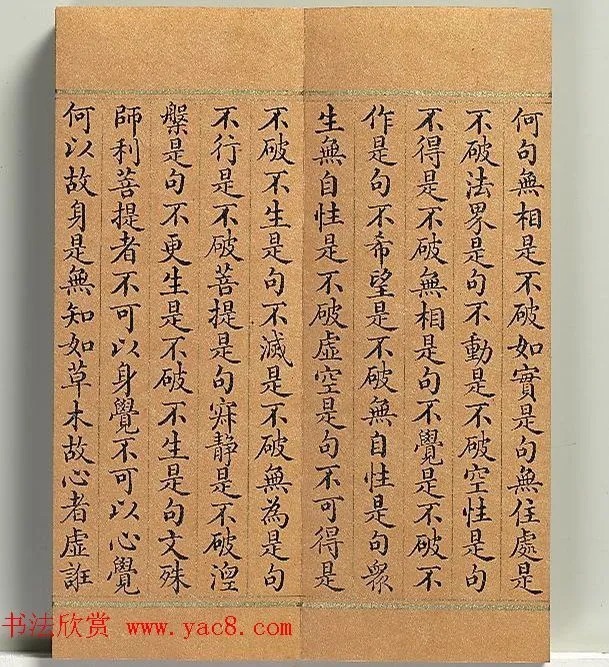 何句無相是不破如實是句無住處是
不破法界是句不動是不破空性是句
不得是不破無相是句不覺是不破不
作是句不希望是不破無自性是句衆
生無自性是不破虛空是句不可得是
不破不生是句不滅是不破無為是句
不行是不破菩提是句寂静是不破涅
槃是句不更生是不破不生是句文殊
師利菩提者不可以身覺不可以心覺
何以故身是無知如草木故心者虛誑
书法欣赏 www.yac8.com